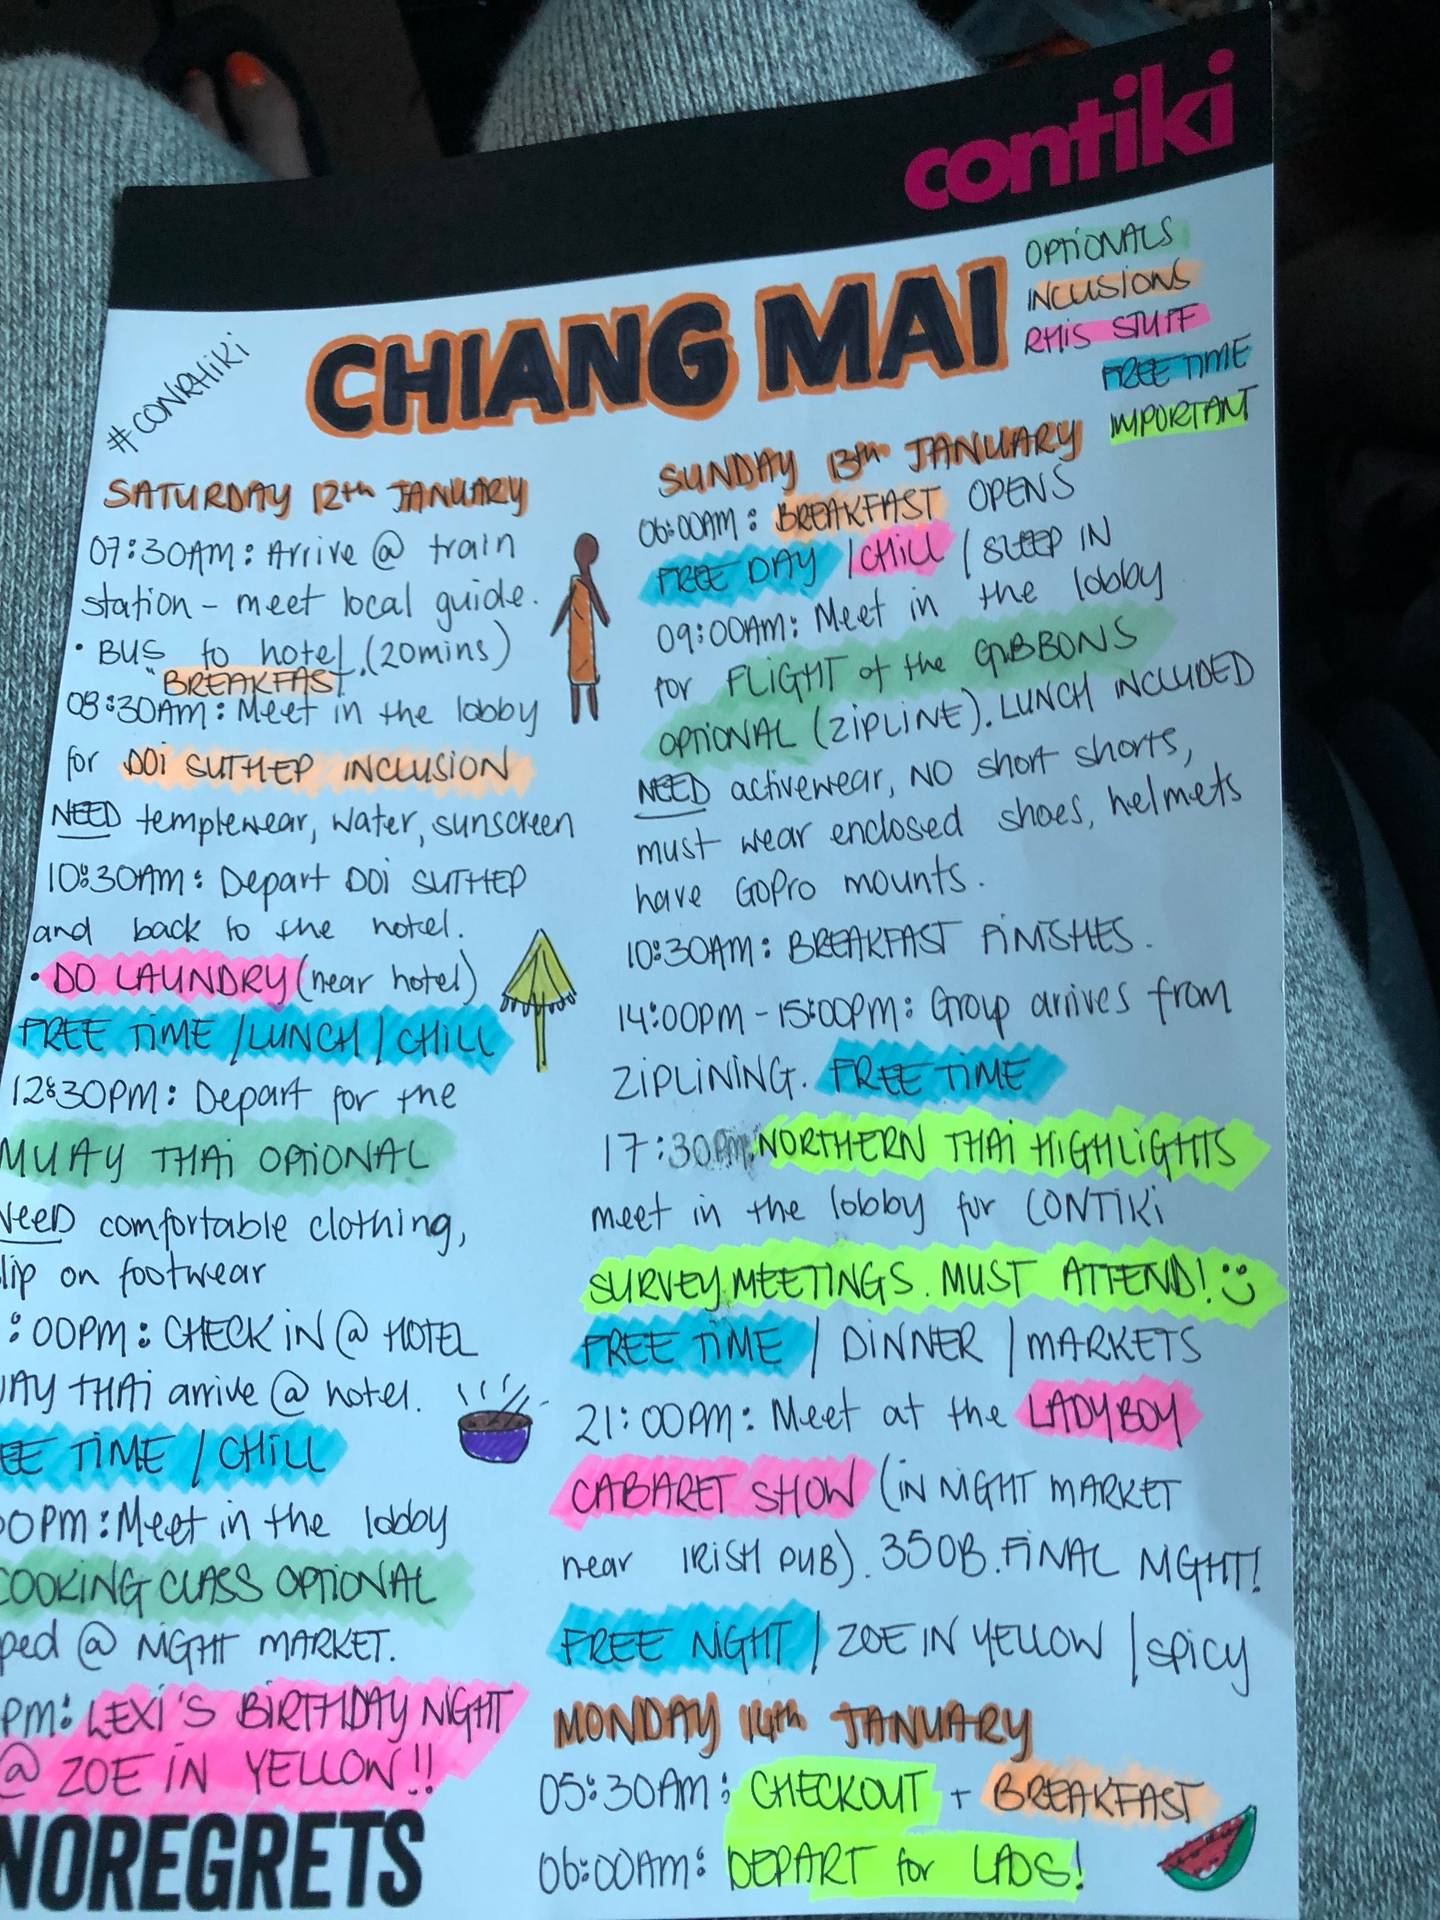 contiki
OPTIONALS
INCLUSIONS
RHIS STUFF
FREE TIME
IMPORTANT
#CONRHIKI
CHIANG MAI
SATURDAY 12th JANUARY
07:30AM: Arrive @ train
station - meet local guide.
• BUS to hotel. (20mins)
"BREAKFAST"
08:30AM: Meet in the lobby
for DOI SUTHEP INCLUSION
NEED templewear, water, sunscreen
10:30AM: Depart DOI SUTHEP
and back to the hotel.
• DO LAUNDRY (near hotel)
FREE TIME / LUNCH / CHILL
12:30PM: Depart for the
MUAY THAI OPTIONAL
NEED comfortable clothing,
lip on footwear
:00PM: CHECK IN @ HOTEL
UAY THAI arrive @ hotel.
EE TIME / CHILL
00PM: Meet in the lobby
COOKING CLASS OPTIONAL
ped @ NIGHT MARKET.
PM: LEXI'S BIRTHDAY NIGHT
@ ZOE IN YELLOW!!
NOREGRETS
SUNDAY 13th JANUARY
06:00AM: BREAKFAST OPENS
FREE DAY / CHILL / SLEEP IN
09:00AM: Meet in the lobby
for FLIGHT of the GIBBONS
OPTIONAL (ZIPLINE). LUNCH INCLUDED
NEED activewear, NO short shorts,
must wear enclosed shoes, helmets
have GoPro mounts.
10:30AM: BREAKFAST FINISHES.
14:00PM - 15:00PM: Group arrives from
ZIPLINING. FREE TIME
17:30PM: NORTHERN THAI HIGHLIGHTS
meet in the lobby for CONTIKI
SURVEY MEETINGS. MUST ATTEND!
FREE TIME / DINNER / MARKETS
21:00PM: Meet at the LADYBOY
CABARET SHOW (IN NIGHT MARKET
near IRISH PUB). 350B. FINAL NIGHT!
FREE NIGHT / ZOE IN YELLOW / SPICY
MONDAY 14th JANUARY
05:30AM: CHECKOUT + BREAKFAST
06:00AM: DEPART for LAOS!